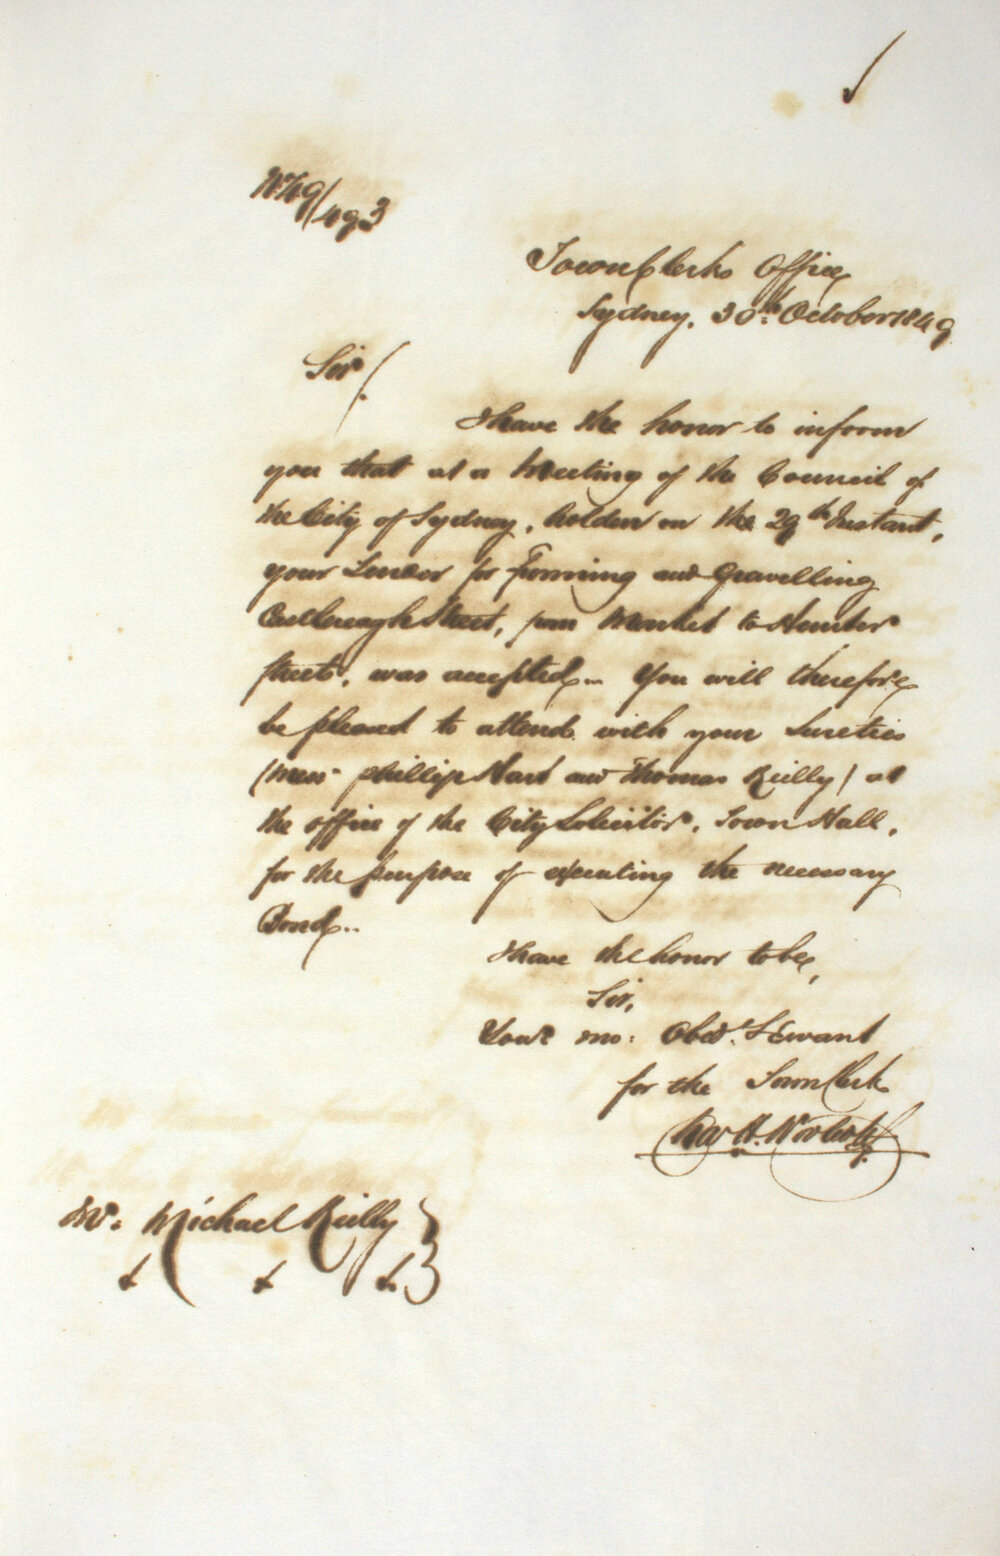 No 49/493
Town Clerks Office
Sydney, 30th October 1849
Sir
I have the honor to inform
you that at a Meeting of the Council of
the City of Sydney, holden on the 29th Instant,
your Tender for Forming and Gravelling
Castlereagh Street, from Market to Hunter
Streets, was accepted.. You will therefore
be pleased to attend with your Sureties
(Messrs Phillip Hart and Thomas Reilly) at
the office of the City Solicitor, Town Hall,
for the purpose of executing the necessary
Bond..
I have the honor to be,
Sir,
Your mo: Obed.t Servant
for the Town Clerk
Mr. Michael Reilly }
&c &c &c